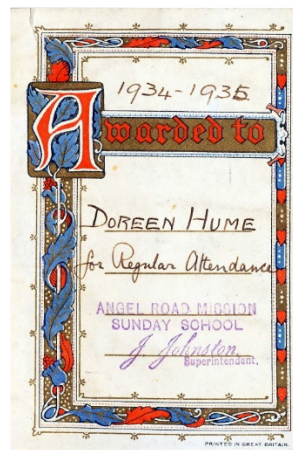 1934-1935.
Awarded to
DOREEN HUME
for Regular Attendance
ANGEL ROAD MISSION
SUNDAY SCHOOL
J. Johnston
Superintendent.
PRINTED IN GREAT BRITAIN.